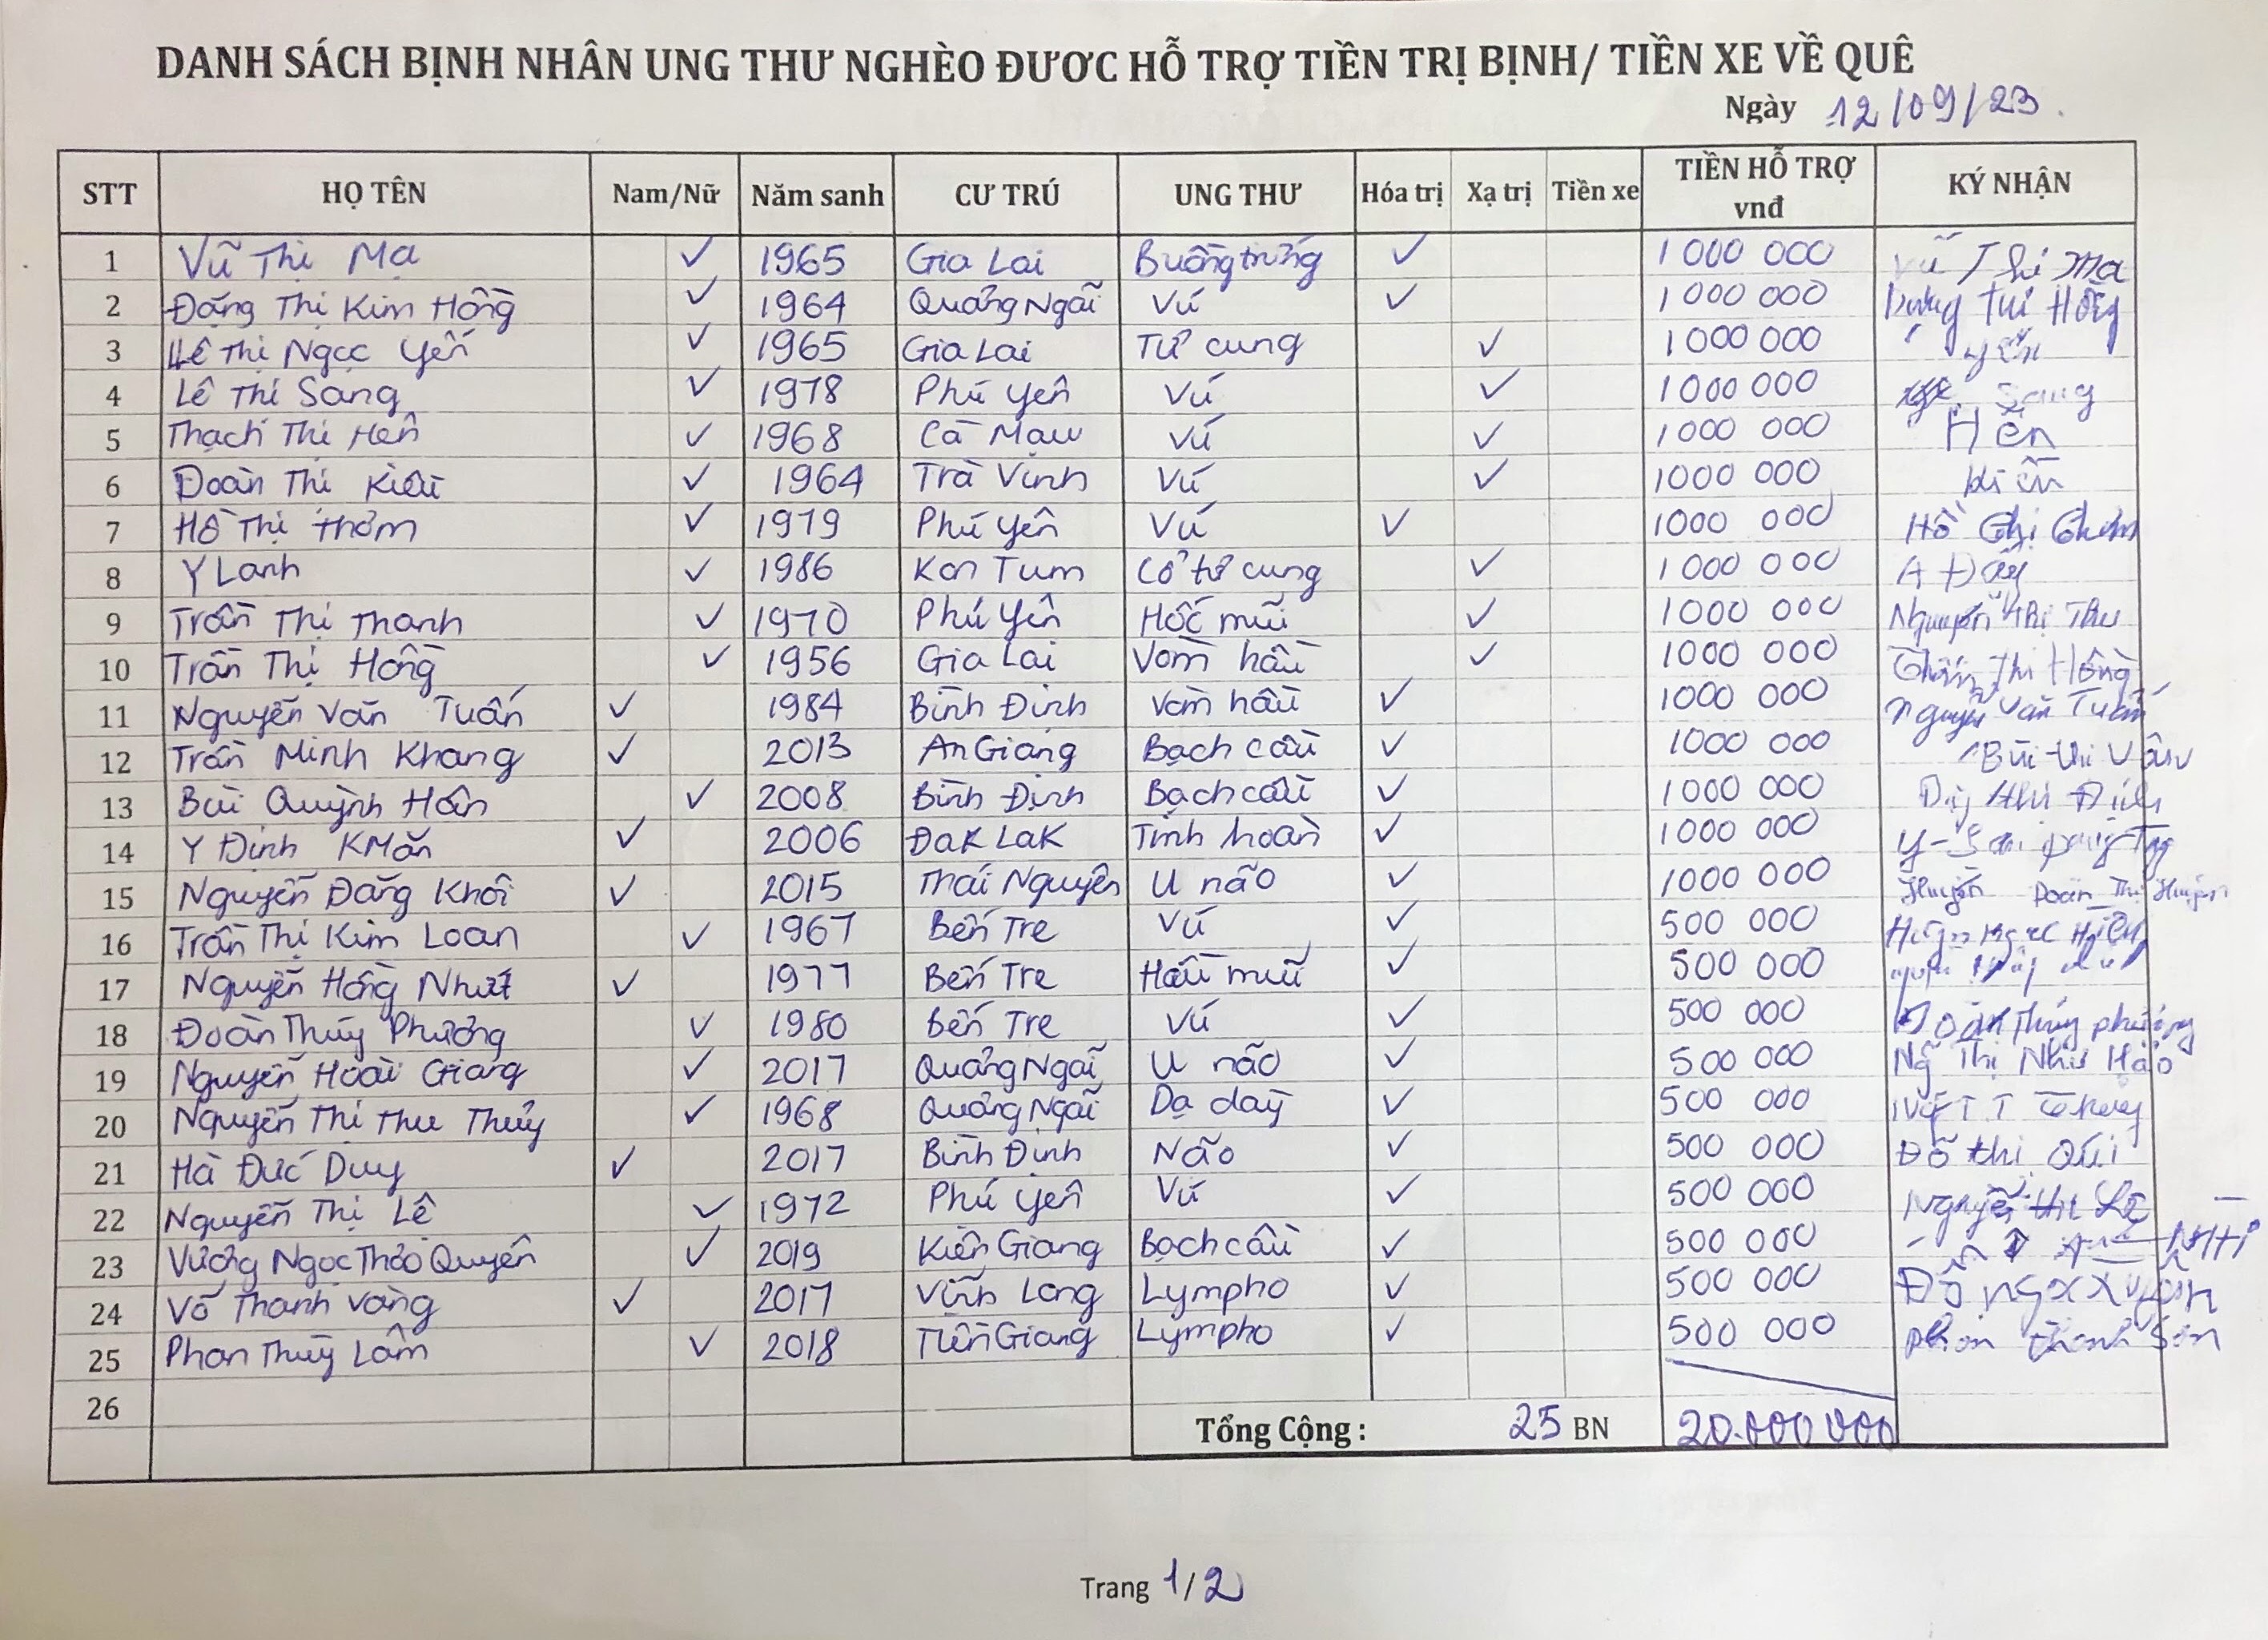 DANH SÁCH BỊNH NHÂN UNG THƯ NGHÈO ĐƯƠC HỖ TRỢ TIỀN TRỊ BỊNH/ TIỀN XE VỀ QUÊ
Ngày 12/09/23.
STT HỌ TÊN Nam/Nữ Năm sanh CƯ TRÚ UNG THƯ Hóa trị Xạ trị Tiền xe TIỀN HỖ TRỢ vnđ KÝ NHẬN
1 Vũ Thị Mạ ✓ 1965 Gia Lai Buồng trứng ✓ 1 000 000 Vũ Thị Mạ
2 Đặng Thị Kim Hồng ✓ 1964 Quảng Ngãi Vú ✓ 1 000 000
3 Lê Thị Ngọc Yến ✓ 1965 Gia Lai Tử cung ✓ 1 000 000 Yến
4 Lê Thị Sang ✓ 1978 Phú Yên Vú ✓ 1 000 000 Sang
5 Thạch Thị Hên ✓ 1968 Cà Mau Vú ✓ 1 000 000 Hên
6 Đoàn Thị Kiều ✓ 1964 Trà Vinh Vú ✓ 1000 000
7 Hồ Thị Thơm ✓ 1979 Phú Yên Vú ✓ 1000 000 Hồ Thị Thơm
8 Y Lanh ✓ 1986 Kon Tum Cổ tử cung ✓ 1 000 000
9 Trần Thị Thanh ✓ 1970 Phú Yên Hốc mũi ✓ 1000 000 Nguyễn Thị Thu
10 Trần Thị Hồng ✓ 1956 Gia Lai Vòm hầu ✓ 1000 000 Thị Hồng
11 Nguyễn Văn Tuấn ✓ 1984 Bình Định Vòm hầu ✓ 1000 000 Nguyễn Văn Tuấn
12 Trần Minh Khang ✓ 2013 An Giang Bạch cầu ✓ 1000 000 Bùi Thi Vân
13 Bùi Quỳnh Hân ✓ 2008 Bình Định Bạch cầu ✓ 1 000 000
14 Y Định KMăn ✓ 2006 Đak Lak Tinh hoàn ✓ 1000 000
15 Nguyễn Đăng Khôi ✓ 2015 Thái Nguyên U não ✓ 1000 000 Huyền Đoàn Thị Huyền
16 Trần Thị Kim Loan ✓ 1967 Bến Tre Vú ✓ 500 000
17 Nguyễn Hồng Nhựt ✓ 1977 Bến Tre Hầu mũi ✓ 500 000
18 Đoàn Thúy Phượng ✓ 1980 Bến Tre Vú ✓ 500 000 Đoàn Thúy Phượng
19 Nguyễn Hoài Giang ✓ 2017 Quảng Ngãi U não ✓ 500 000 Ng Thị Như Hảo
20 Nguyễn Thị Thu Thủy ✓ 1968 Quảng Ngãi Dạ dày ✓ 500 000
21 Hà Đức Duy ✓ 2017 Bình Định Não ✓ 500 000 Đỗ thị Qúi
22 Nguyễn Thị Lệ ✓ 1972 Phú Yên Vú ✓ 500 000 Nguyễn thị Lệ
23 Vương Ngọc Thảo Quyên ✓ 2019 Kiên Giang Bạch cầu ✓ 500 000
24 Võ Thanh Vàng ✓ 2017 Vĩnh Long Lympho ✓ 500 000
25 Phan Thùy Lâm ✓ 2018 Tiền Giang Lympho ✓ 500 000 Phan Thanh Sơn
26
Tổng Cộng : 25 BN 20.000 000
Trang 1/2